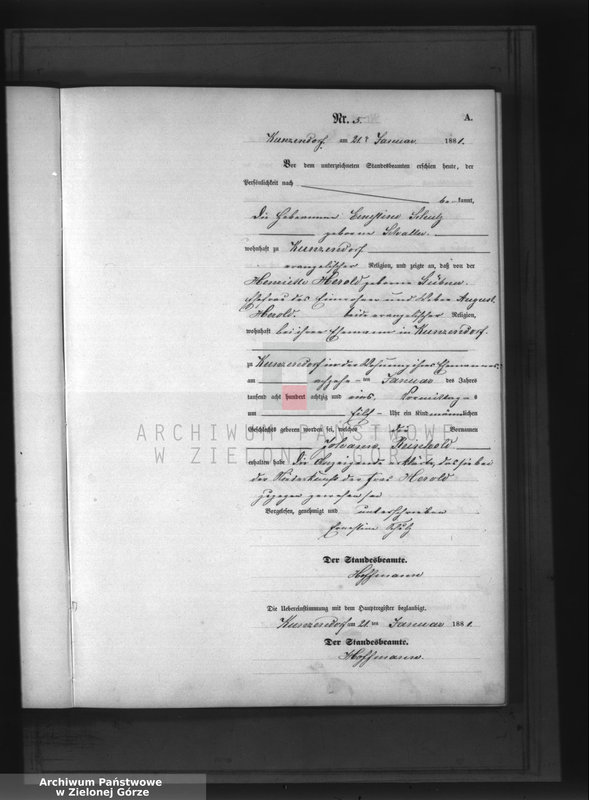 Nr. 5. A.
Kunzendorf am 21. Januar 1881.
Vor dem unterzeichneten Standesbeamten erschien heute, der
Persönlichkeit nach
be kannt,
Die Hebamme Ernestine Schulz
geborene
wohnhaft zu Kunzendorf
evangelischer Religion, und zeigte an, daß von der
Henriette Herold geborene
Ehefrau des Einwohner und Weber August
Herold. beide evangelischer Religion,
wohnhaft bei ihren Ehemann in Kunzendorf
zu Kunzendorf in der Wohnung ihres Ehemannes
am ten Januar des Jahres
tausend acht hundert achtzig und eins, Vormittag s
um Uhr ein Kind männlichen
Geschlechts geboren worden sei, welches die Vornamen
Reinhold
erhalten habe Die Anzeigende erklärte, daß sie bei
der Niederkunft der Frau Herold
zugegen gewesen sei
Vorgelesen, genehmigt und unterschrieben
Ernestine Schulz
Der Standesbeamte.
Hoffmann
Die Uebereinstimmung mit dem Hauptregister beglaubigt.
Kunzendorf am 21. ten Januar 1881.
Der Standesbeamte.
Hoffmann
ARCHIWUM PAŃSTWOWE
W ZIELONEJ GÓRZE
Archiwum Państwowe
w Zielonej Górze